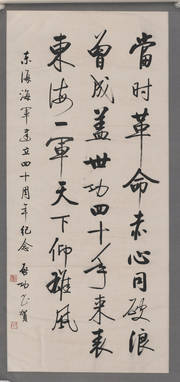 當时革命赤心同破浪
曾成蓋世功四十年来表
東海一軍天下仰雄風
东海海軍建立四十周年纪念 启功 賀